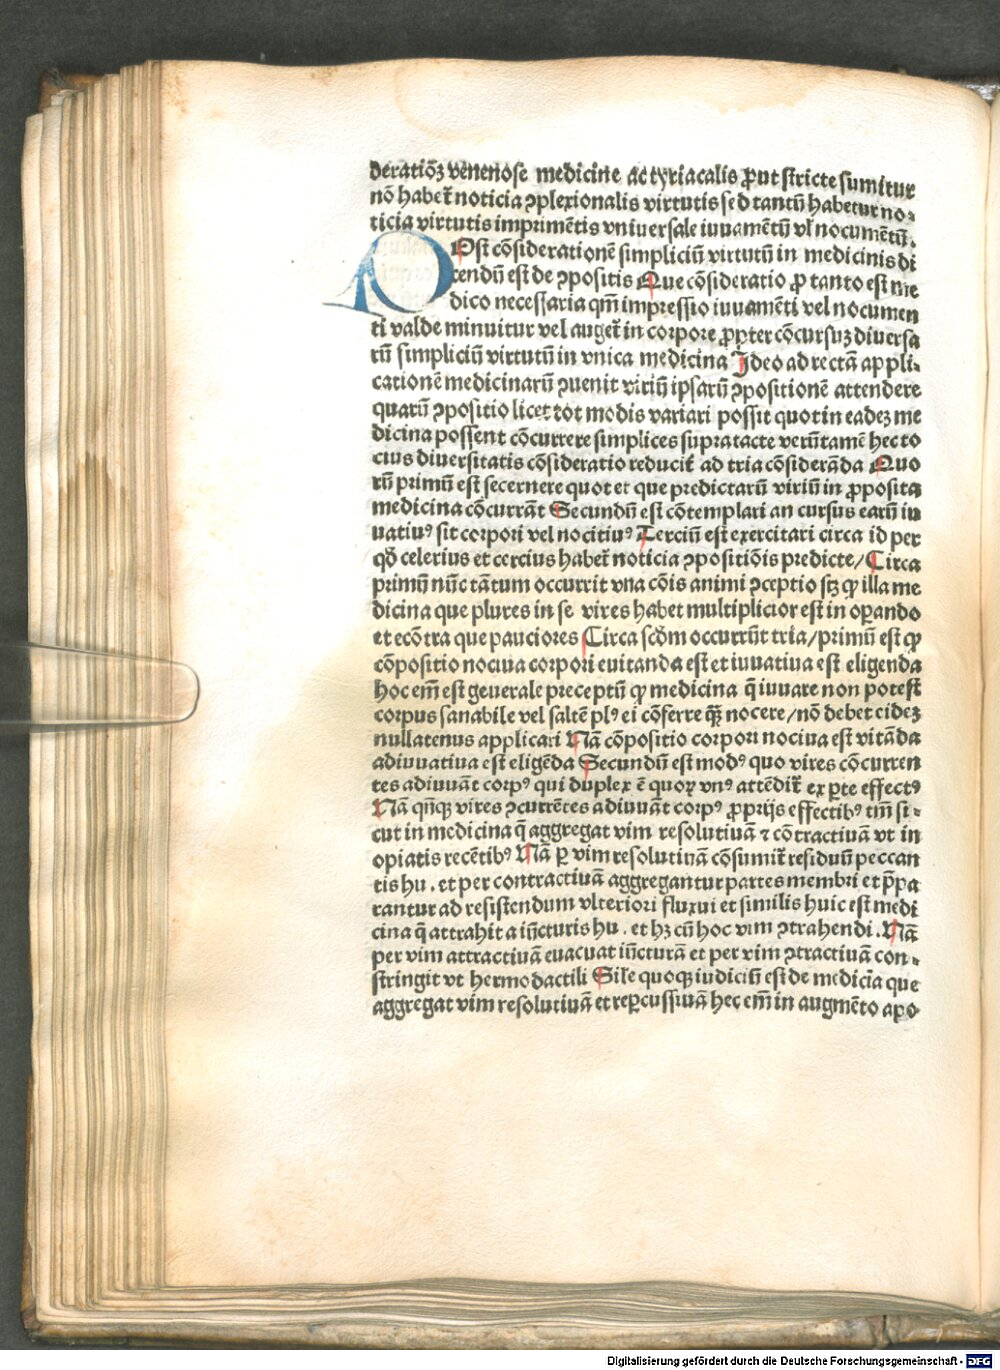 deratiōꝫ venenose medicine ac tyriacalis ꝓut stricte sumitur
nō habet᷑ noticia ꝯplexionalis virtutis sed tantū habetur no⸗
ticia virtutis imprimētis vniuersale iuuamētū vl̕ nocumētū.
POst cōsiderationē simpliciū virtutū in medicinis di
cendū est de ꝯpositis Que cōsideratio ꝓ tanto est me
dico necessaria qm̄ impressio iuuamēti vel nocumen
ti valde minuitur vel auget᷑ in corpore ꝓpter cōcursuꝫ diuersa
rū simpliciū virtutū in vnica medicina Ideo ad rectā appli⸗
cationē medicinarū ꝯuenit viriū ipsarū ꝯpositionē attendere
quarū ꝯpositio licet tot modis variari possit quot in eadeꝫ me
dicina possent cōcurrere simplices supratacte verūtamē hec to
cius diuersitatis cōsideratio reducit᷑ ad tria cōsiderāda Quo
rū primū est secernere quot et que predictarū viriū in ꝓposita
medicina cōcurrāt Secundū est cōtemplari an cursus earū iu
uatiuꝰ sit corpori vel nocitiuꝰ Terciū est exercitari circa id per
qḋ celerius et cercius habet᷑ noticia ꝯpositiōis predicte/Circa
primū nūc tātum occurrit vna cōis animi ꝯceptio sꝫ ꝙ illa me
dicina que plures in se vires habet multiplicior est in oꝑando
et ecōtra que pauciores Circa scḋm occurrūt tria/primū est ꝙ
cōpositio nociua corpori euitanda est et iuuatiua est eligenda
hoc em̄ est generale preceptū ꝙ medicina q̄ iuuare non potest
corpus sanabile vel saltē plꝰ ei cōferre qꝫ nocere/nō debet eideꝫ
nullatenus applicari Nā cōpositio corpori nociua est vitāda
adiuuatiua est eligēda Secundū est modꝰ quo vires cōcurren
tes adiuuāt corpꝰ qui duplex ē quoꝝ vnꝰ attēdit᷑ ex ꝑte effectꝰ
Nā qn̄qꝫ vires ꝯcurrētes adiuuāt corpꝰ ꝓprijs effectibꝰ tm̄ si⸗
cut in medicina q̄ aggregat vim resolutiuā ⁊ cōtractiuā vt in
opiatis recētibꝰ Nā ꝑ vim resolutiuā cōsumit᷑ residuū peccan
tis hu. et per contractiuā aggregantur partes membri et p̄pa
rantur ad resistendum vlteriori fluxui et similis huic est medi
cina q̄ attrahit a iūcturis hu. et hꝫ cū hoc vim ꝯtrahendi. Nā
per vim attractiuā euacuat iūcturā et per vim ꝯtractiuā con⸗
stringit vt hermodactili Sil̕e quoqꝫ iudiciū est de medicīa que
aggregat vim resolutiuā et reꝑcussiuā hec em̄ in augmēto apo⸗
Digitalisierung gefördert durch die Deutsche Forschungsgemeinschaft - DFG